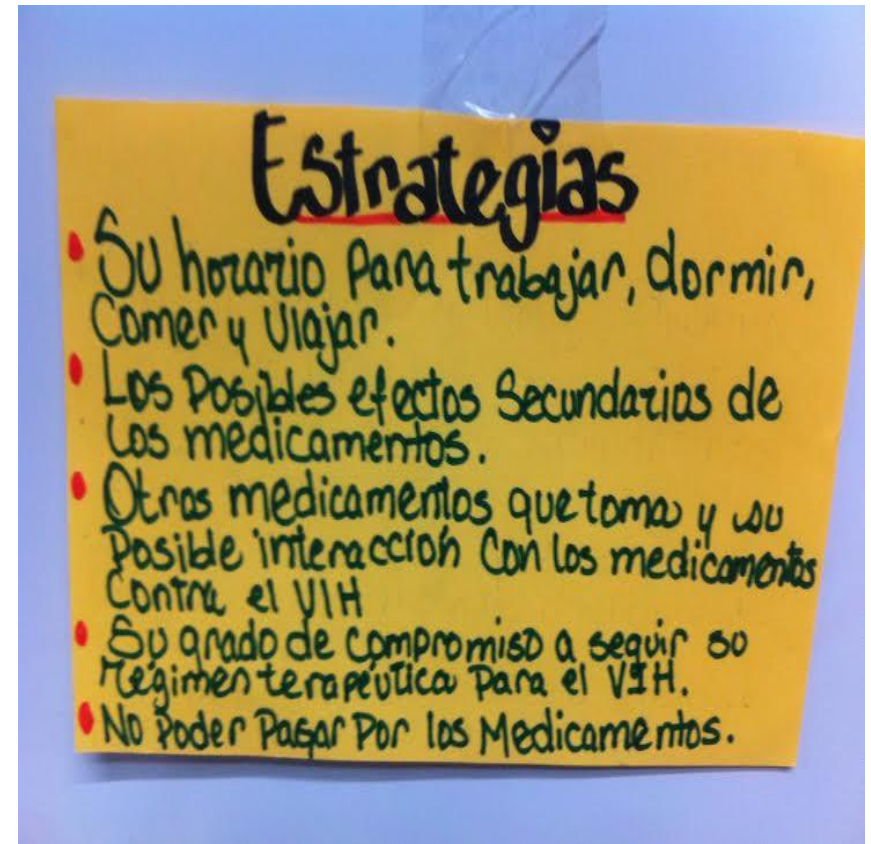 Estrategias
• Su horario para trabajar, dormir,
Comer y Viajar.
• Los Posibles efectos Secundarios de
Los medicamentos.
• Otros medicamentos que toma y su
Posible interacción Con los medicamentos
Contra el VIH
• Su grado de Compromiso a seguir su
régimen terapéutica Para el VIH.
• No Poder Pagar Por los Medicamentos.